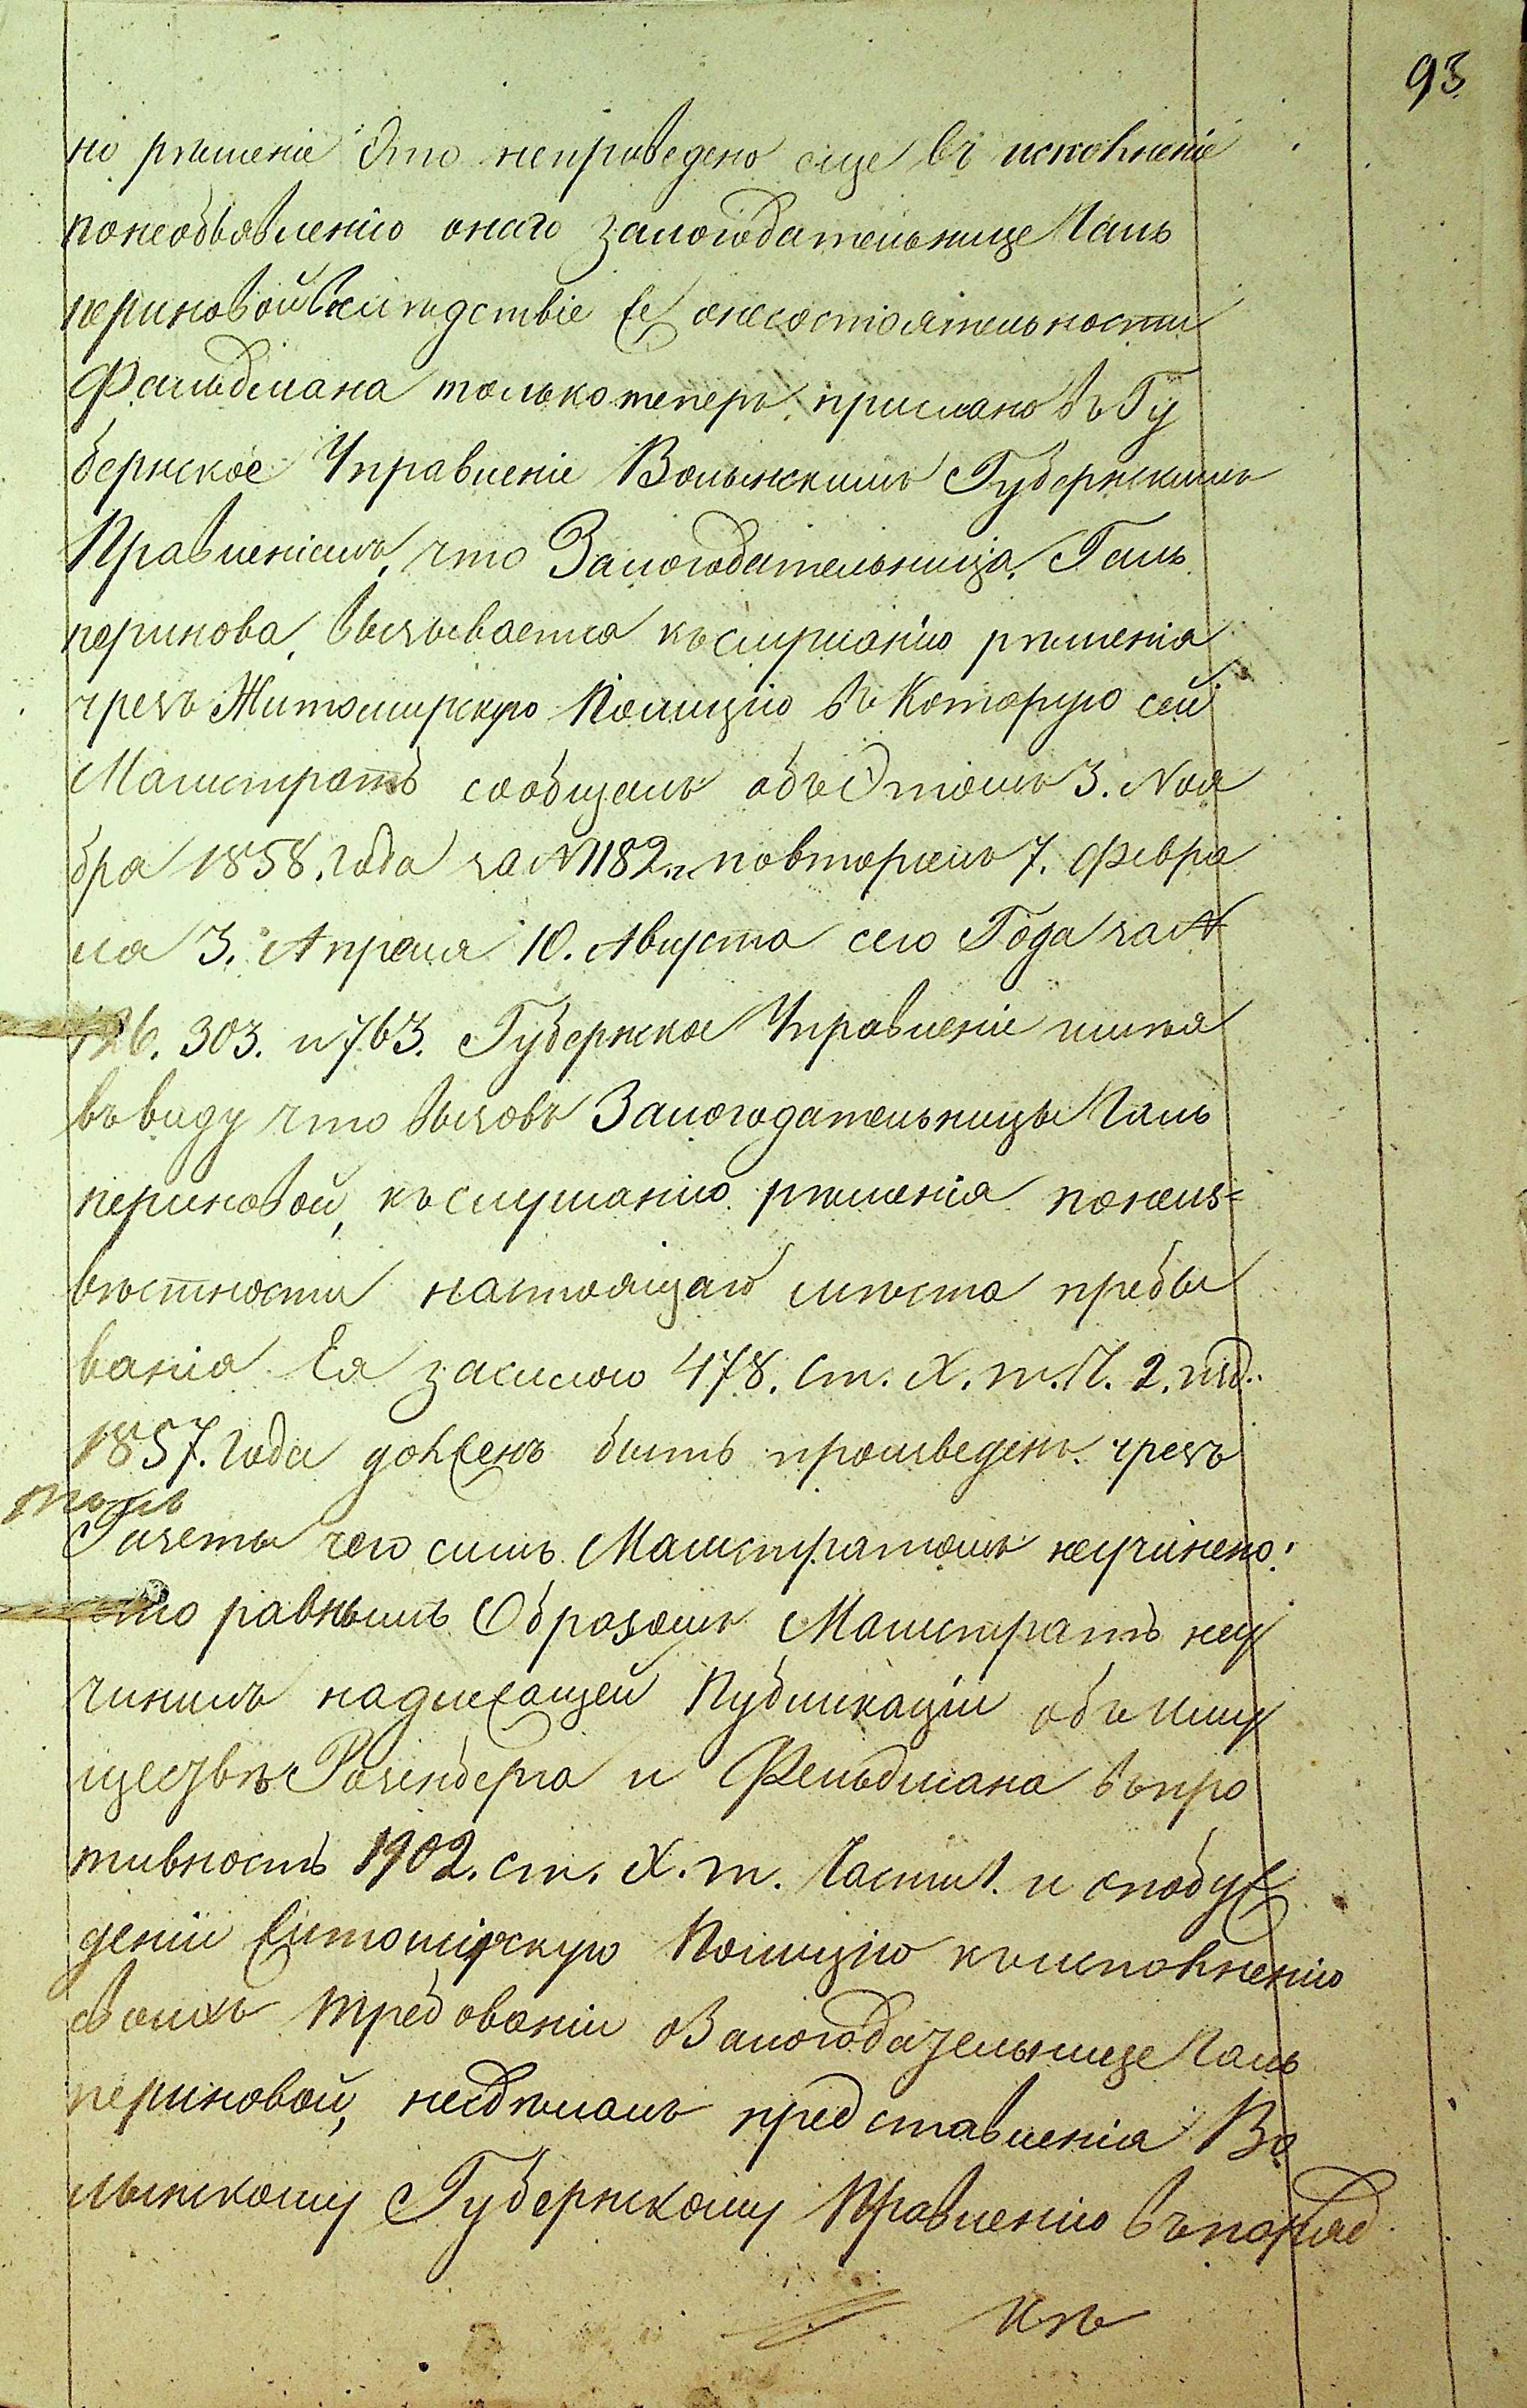 93
но рѣшеніе Это неприведено еще въ исполненіе
понеобъявленію онаго залогодательнице Галь
периновой вслѣдствіе Ее несостоятельности
Фельдмана только теперь прислано въ Гу
бернское Управленіе Волынскимъ Губернскимъ
Правленіемъ, что Залогодательница, Галь
перинова, вызывается къслушанію рѣшенія
чрезъ Житомирскую Полицію въ Которую сей
Магистратъ сообщалъ объ Этомъ 3. Ноя
бра 1858. года за № 1182. и повторялъ 7. Февра
ля 3. Апреля 10. Августа сего Года за №
126. 303. и 763. Губернское Управленіе имѣя
въ виду что вызовъ Залогодательницы Галь
периновой, къслушанію рѣшенія понеиз=
вѣстности настоящаго мѣста пребы
ванія Ея засилою 478. ст. X. т. Ч. 2. изд.
1857. года долженъ быть произведенъ чрезъ
Газеты чего симъ Магистратомъ неучинено.
точно
равнымъ Образомъ Магистратъ неу
чинилъ надлежащей Публикаціи объ Иму
ществѣ Розенберга и Фельдмана въпро
тивность 1902. ст. X. т. Части 1. и побуж
деніи Житомирскую Полицію къисполненію
своихъ требованіи о Залогодательнице Галь
периновой, несдѣлалъ представленія Во
лынскому Губернскому Правленію въпоряд
кѣ